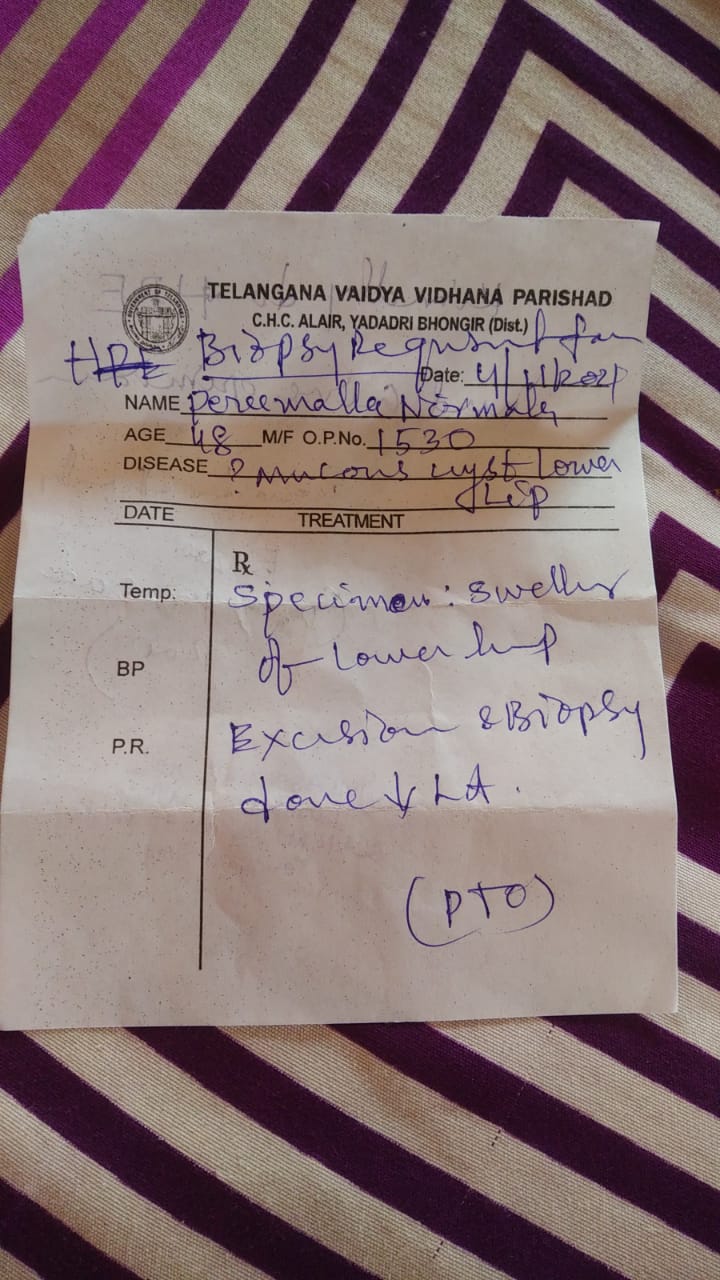 TELANGANA VAIDYA VIDHANA PARISHAD
C.H.C. ALAIR, YADADRI BHONGIR (Dist.)
HPE Biopsy Request for
Date:
NAME Pereemalla Nirmala
AGE 48 M/F O.P.No. 1530
DISEASE ? Mucous cyst Lower
Lip
DATE TREATMENT
R
Temp: Specimen: Swelling
BP of Lower Lip
P.R. Excision & Biopsy
done ↓ LA.
(PTO)